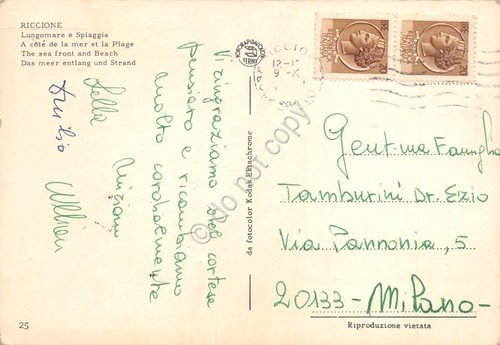 RICCIONE
Lungomare e Spiaggia
A côté de la mer et la Plage
The sea front and Beach
Das meer entlang und Strand
Vi ringraziamo del cortese
pensiero e ricambiamo
molto cordialmente
Lella
da fotocolor Kodak Ektachrome
RICCIO
12-1
9-X
Gent.ma Famiglia
Tamburini Dr. Ezio
Via Pannonia, 5
20133 - Milano -
25
Riproduzione vietata
do not copy